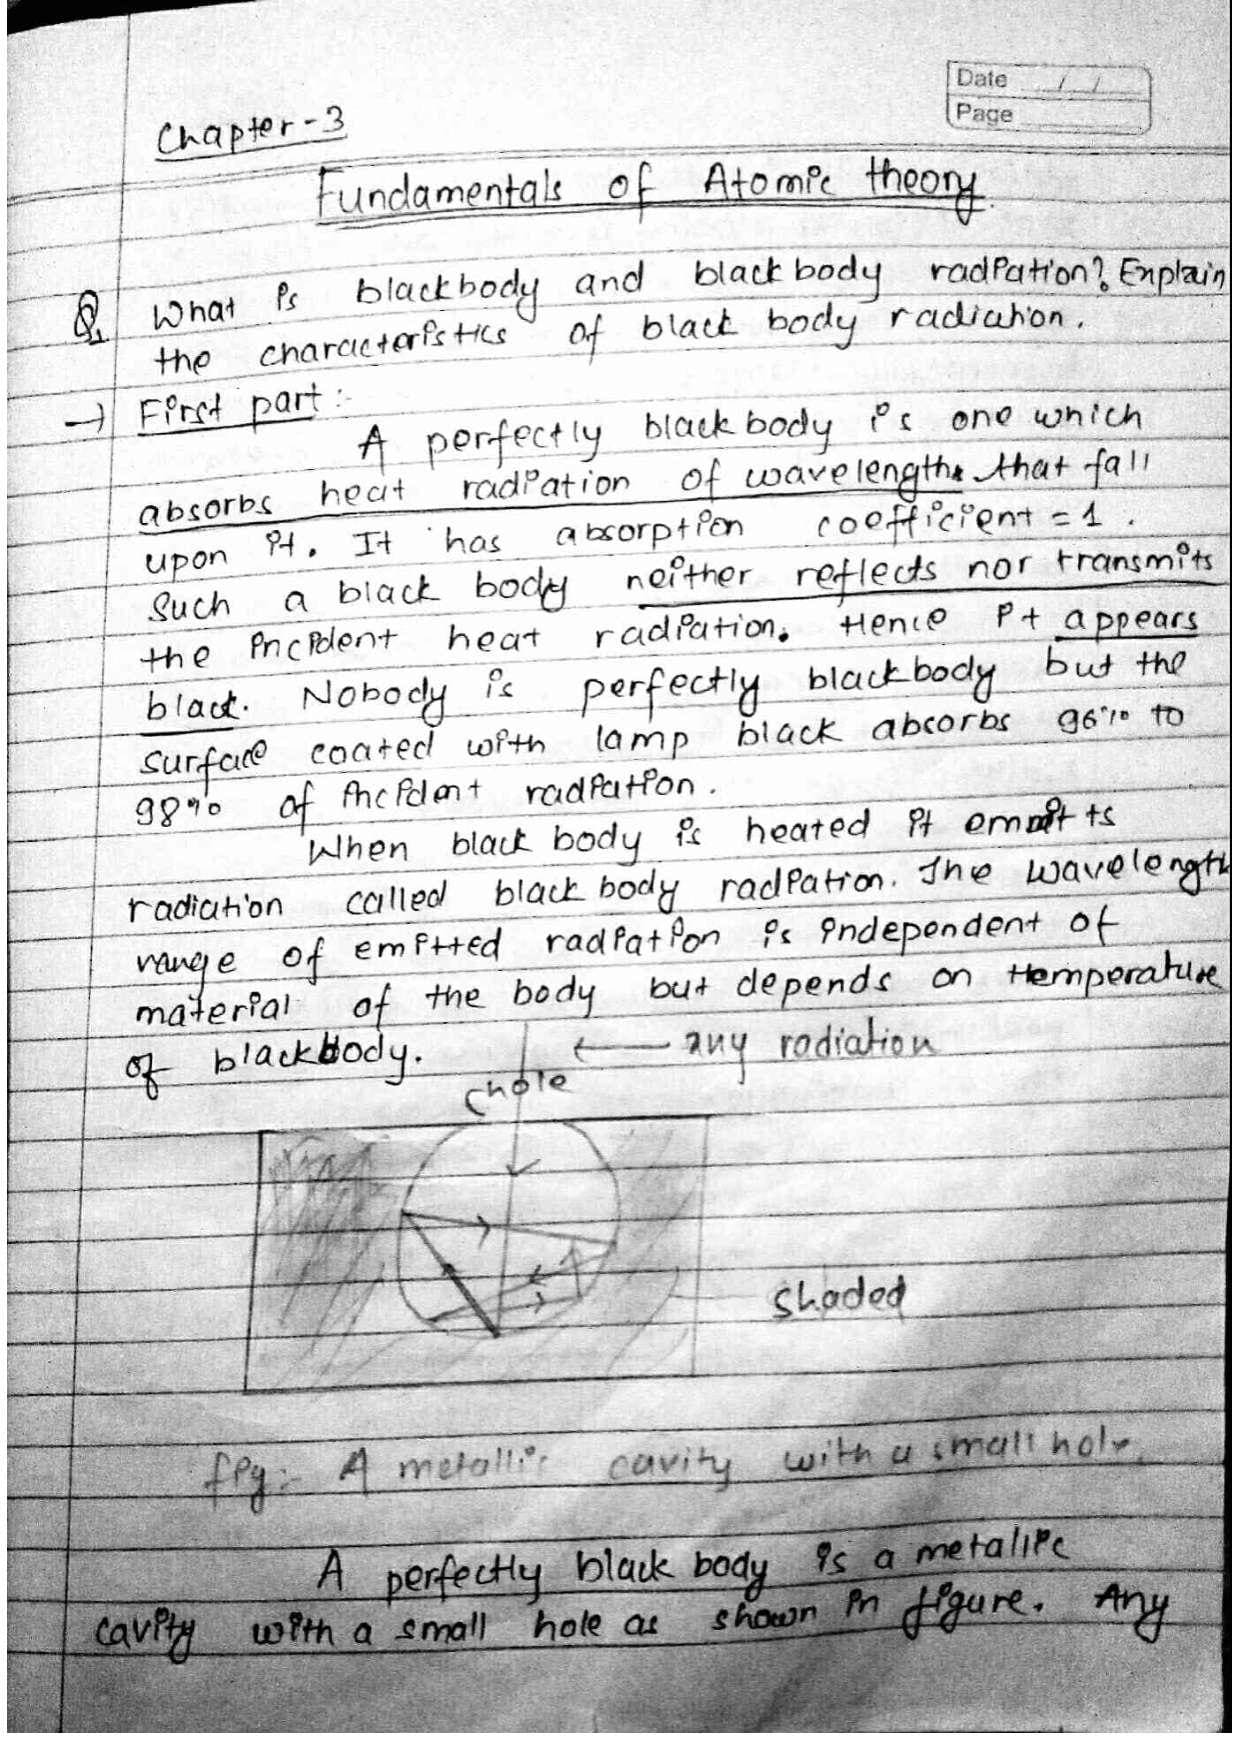 Date / /
Page
Chapter-3
Fundamentals of Atomic theory.
Q. What is blackbody and blackbody radiation? Explain
the characteristics of black body radiation.
→ First part:-
A perfectly blackbody is one which
absorbs heat radiation of wavelengths that fall
upon it. It has absorption coefficient = 1.
Such a black body neither reflects nor transmits
the incident heat radiation. Hence it appears
black. Nobody is perfectly blackbody but the
surface coated with lamp black absorbs 96% to
98% of incident radiation.
When black body is heated it emitts
radiation called black body radiation. The wavelength
range of emitted radiation is independent of
material of the body but depends on temperature
of blackbody.
← any radiation
hole
shaded
fig:- A metallic cavity with a small hole.
A perfectly black body is a metallic
cavity with a small hole as shown in figure. Any